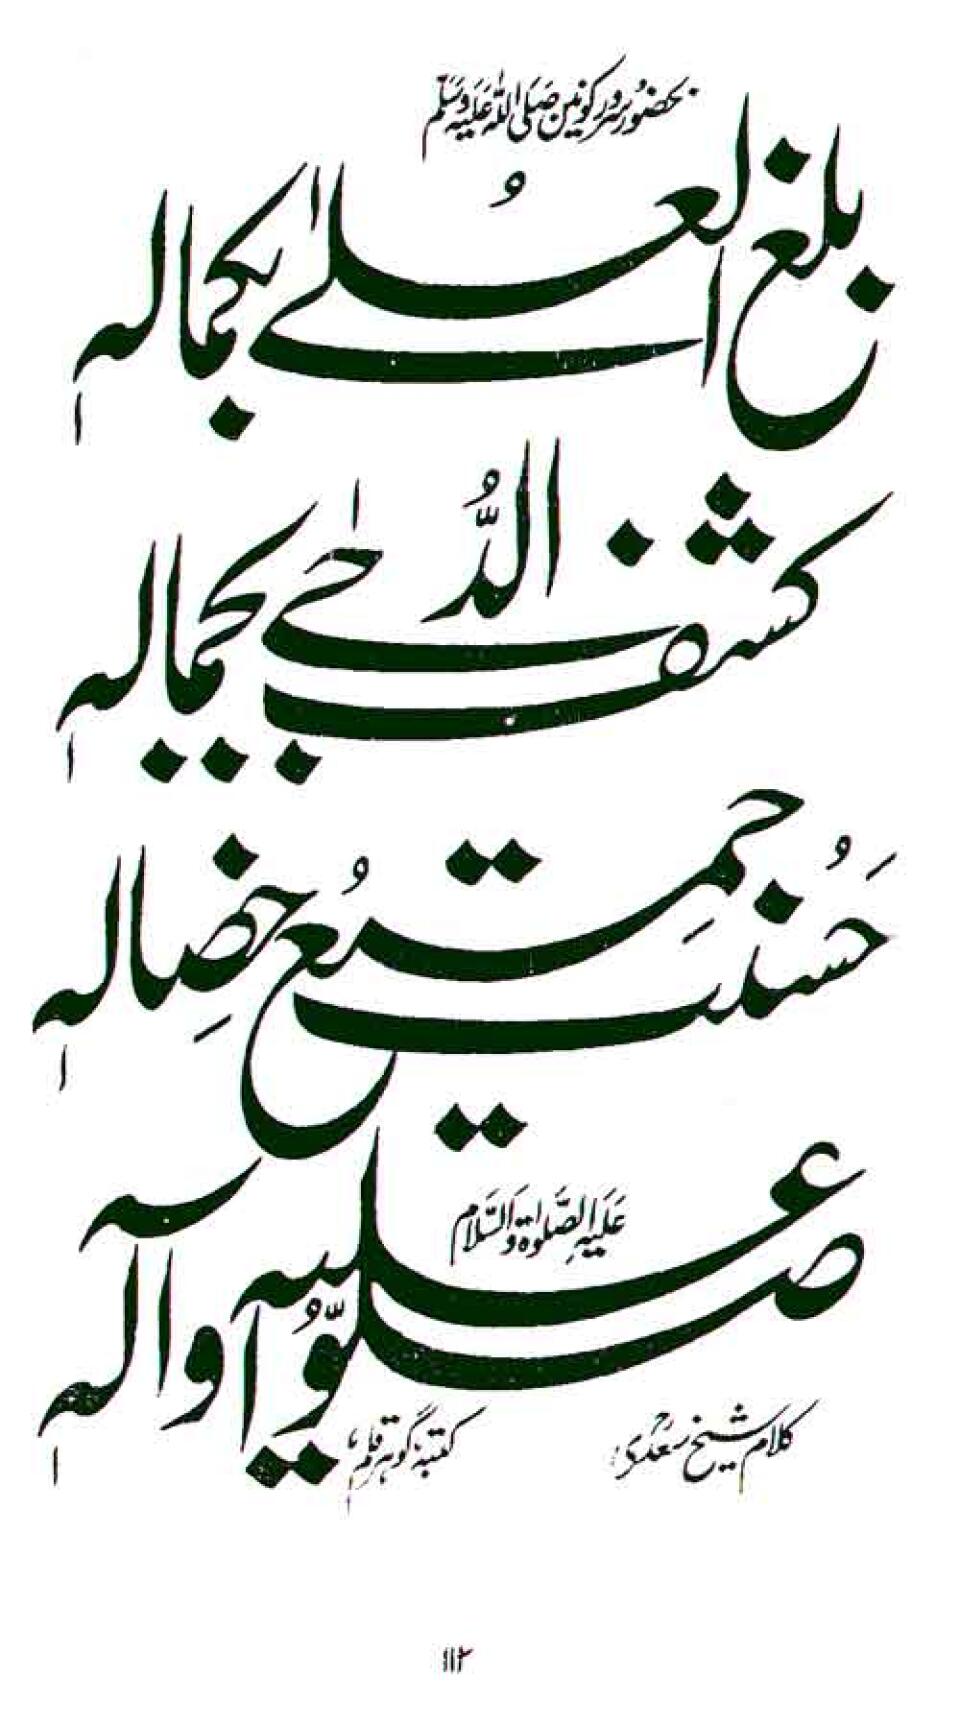 بحضور سرور کونین صَلَی اللہ عَلَیہ وَسَلّم
بلغ العُلےٰ بکمالہٖ
کشف الدُّجےٰ بجمالہٖ
حَسُنت جَمِیعُ خِصَالہٖ
صلّوا علیہ وآلہٖ
عَلَیہِ الصَّلوٰۃ وَالسَّلام
کلام شیخ سعدیؒ
کتبہٗ گوہر قلم
۱۱۲